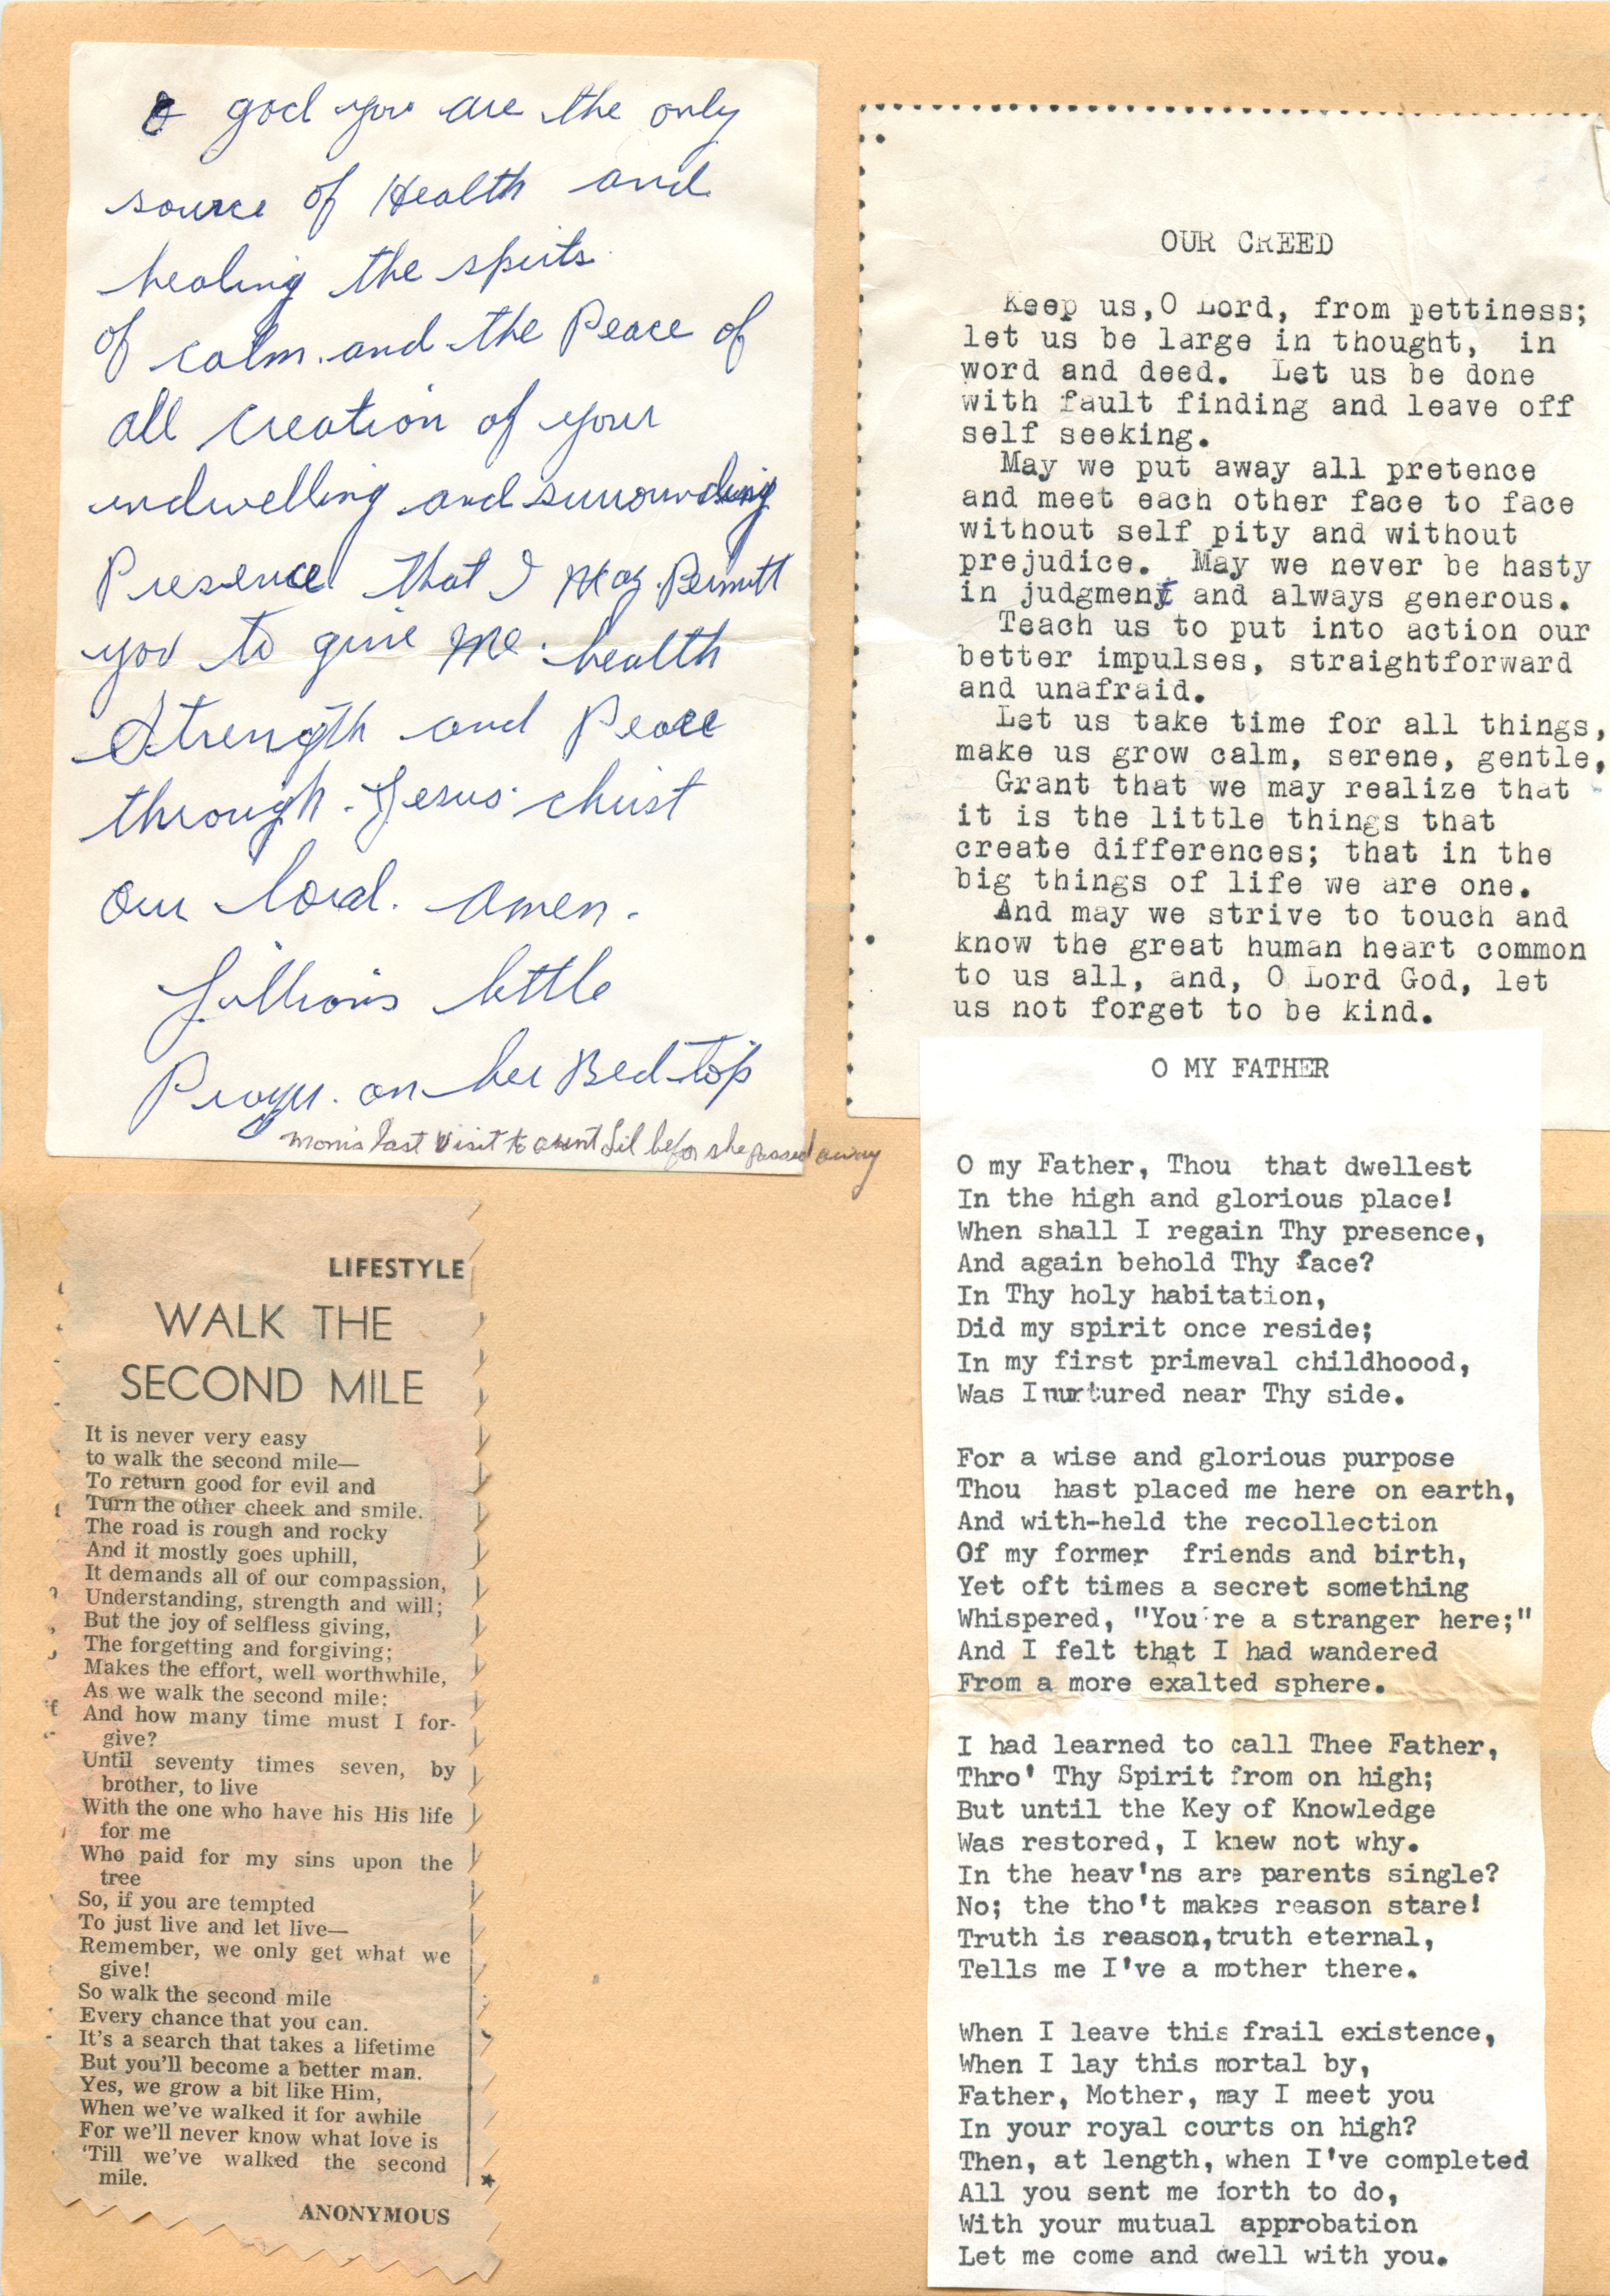 O god you are the only
source of Health and
healing the spirits
of calm and the Peace of
all creation of your
indwelling and surrounding
Presence that I May Permitt
you to give Me health
Strength and Peace
through Jesus christ
our lord. amen.
Lillian's little
Prayer. on her Bed top
mom's last visit to aunt Lil befor she passed away
OUR CREED
Keep us, O Lord, from pettiness;
let us be large in thought, in
word and deed. Let us be done
with fault finding and leave off
self seeking.
May we put away all pretence
and meet each other face to face
without self pity and without
prejudice. May we never be hasty
in judgment and always generous.
Teach us to put into action our
better impulses, straightforward
and unafraid.
Let us take time for all things,
make us grow calm, serene, gentle,
Grant that we may realize that
it is the little things that
create differences; that in the
big things of life we are one.
And may we strive to touch and
know the great human heart common
to us all, and, O Lord God, let
us not forget to be kind.
O MY FATHER
O my Father, Thou that dwellest
In the high and glorious place!
When shall I regain Thy presence,
And again behold Thy face?
In Thy holy habitation,
Did my spirit once reside;
In my first primeval childhoood,
Was I nurtured near Thy side.
For a wise and glorious purpose
Thou hast placed me here on earth,
And with-held the recollection
Of my former friends and birth,
Yet oft times a secret something
Whispered, "You're a stranger here;"
And I felt that I had wandered
From a more exalted sphere.
I had learned to call Thee Father,
Thro' Thy Spirit from on high;
But until the Key of Knowledge
Was restored, I knew not why.
In the heav'ns are parents single?
No; the tho't makes reason stare!
Truth is reason,truth eternal,
Tells me I've a mother there.
When I leave this frail existence,
When I lay this mortal by,
Father, Mother, may I meet you
In your royal courts on high?
Then, at length, when I've completed
All you sent me forth to do,
With your mutual approbation
Let me come and dwell with you.
LIFESTYLE
WALK THE
SECOND MILE
It is never very easy
to walk the second mile—
To return good for evil and
Turn the other cheek and smile.
The road is rough and rocky
And it mostly goes uphill,
It demands all of our compassion,
Understanding, strength and will;
But the joy of selfless giving,
The forgetting and forgiving;
Makes the effort, well worthwhile,
As we walk the second mile;
And how many time must I for-
give?
Until seventy times seven, by
brother, to live
With the one who have his His life
for me
Who paid for my sins upon the
tree
So, if you are tempted
To just live and let live—
Remember, we only get what we
give!
So walk the second mile
Every chance that you can.
It's a search that takes a lifetime
But you'll become a better man.
Yes, we grow a bit like Him,
When we've walked it for awhile
For we'll never know what love is
'Till we've walked the second
mile.
ANONYMOUS